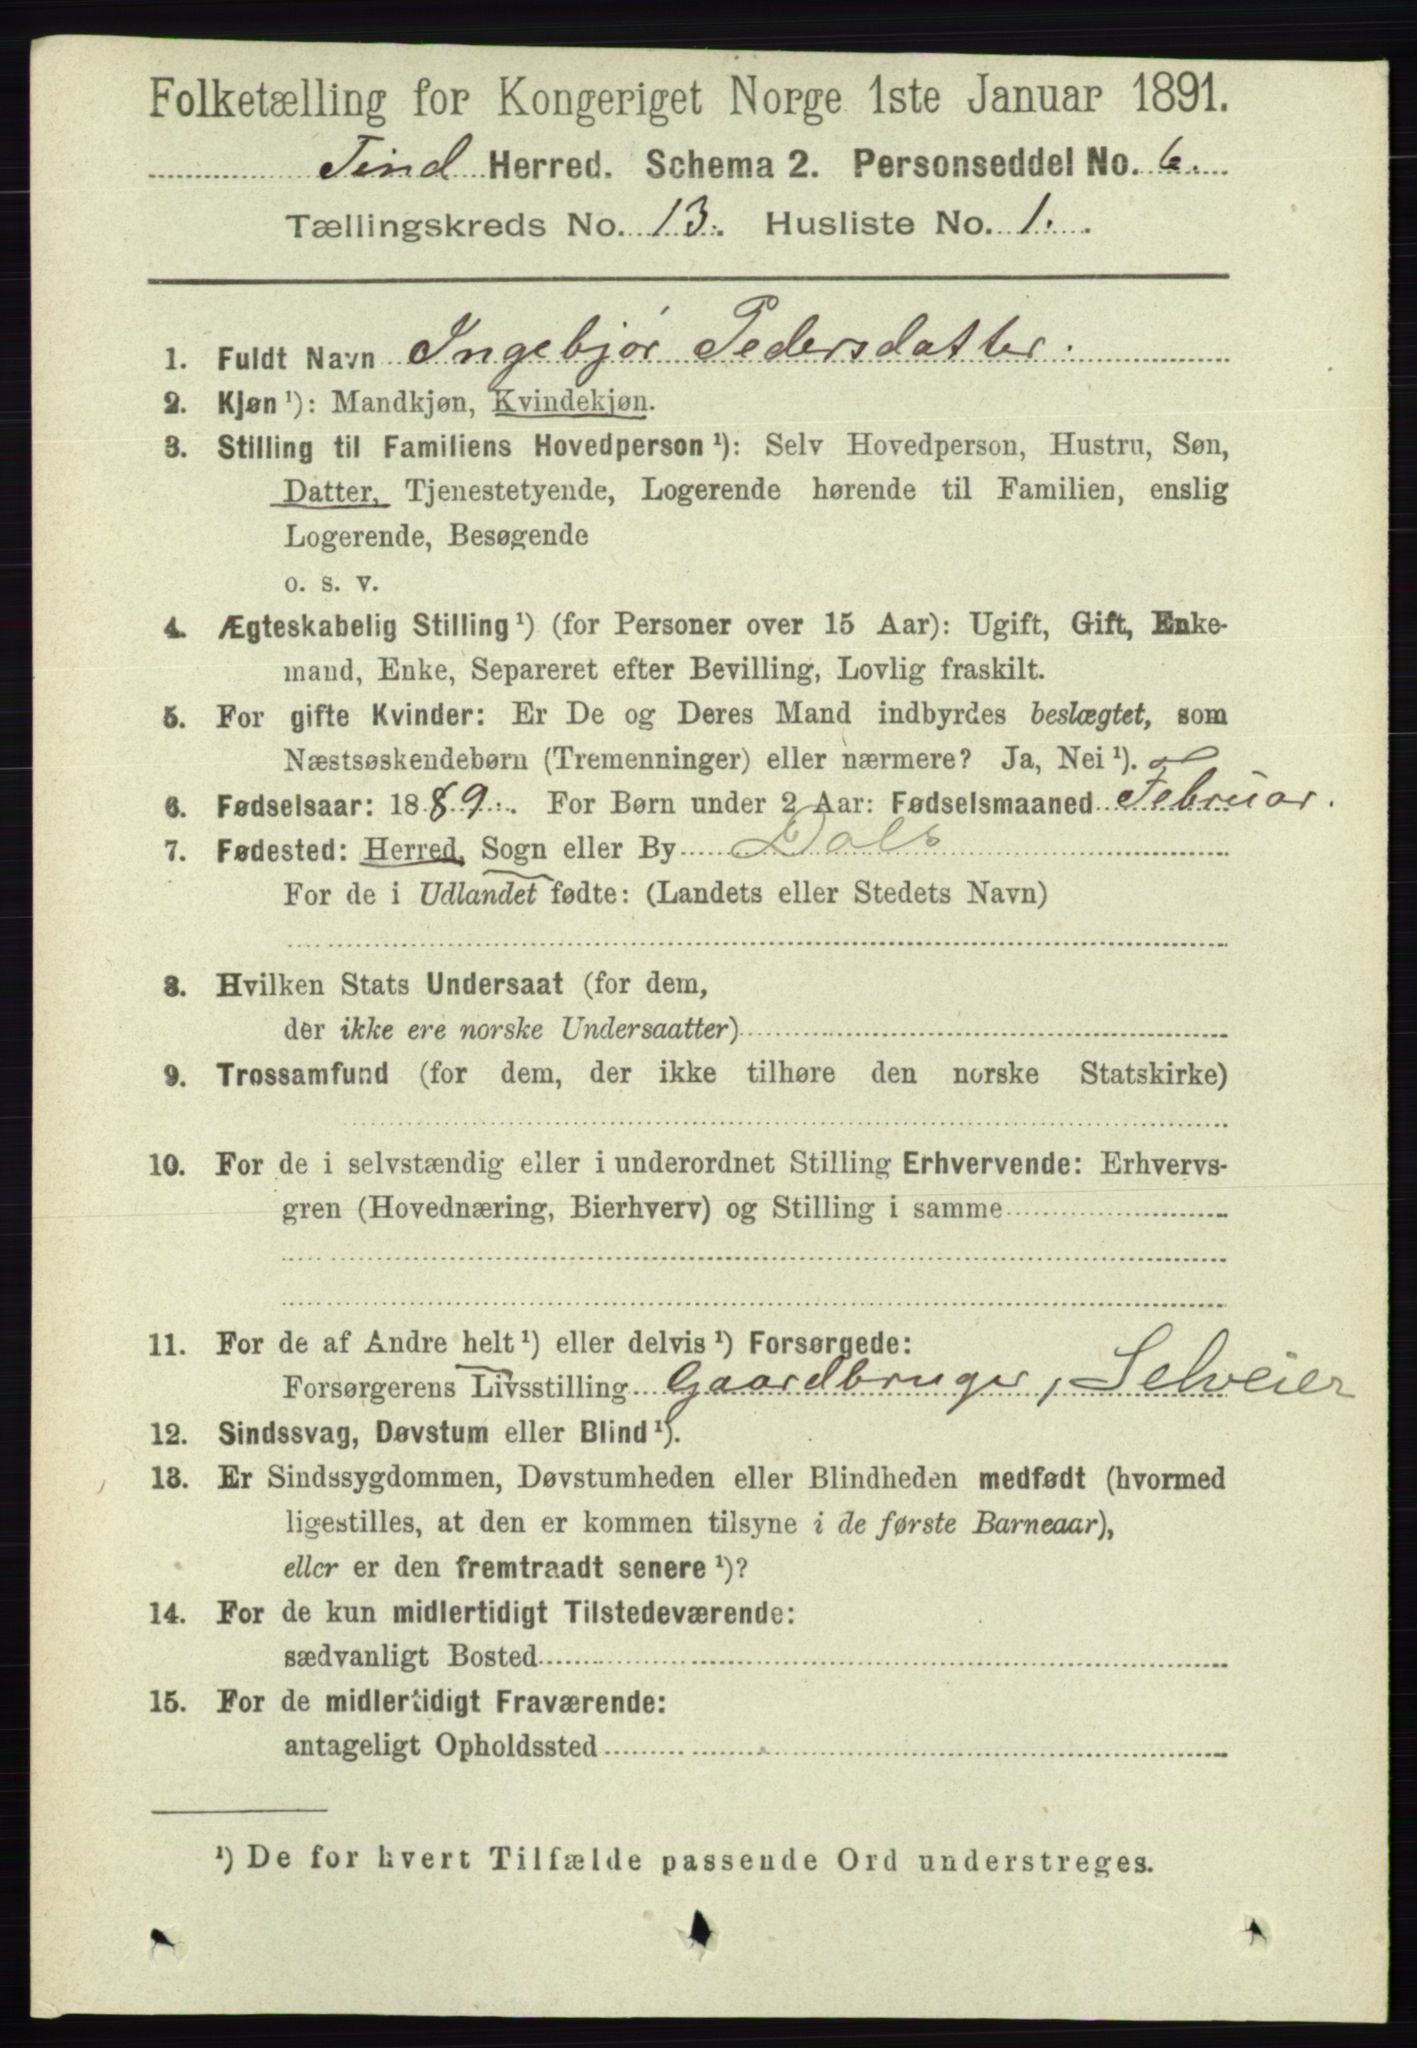 Folketælling for Kongeriget Norge 1ste Januar 1891.
Tind Herred. Schema 2. Personseddel No. 6.
Tællingskreds No. 13. Husliste No. 1.
1. Fuldt Navn Ingebjør Pedersdatter.
2. Kjøn ¹): Mandkjøn, Kvindekjøn.
3. Stilling til Familiens Hovedperson ¹): Selv Hovedperson, Hustru, Søn,
Datter, Tjenestetyende, Logerende hørende til Familien, enslig
Logerende, Besøgende
o. s. v.
4. Ægteskabelig Stilling ¹) (for Personer over 15 Aar): Ugift, Gift, Enke-
mand, Enke, Separeret efter Bevilling, Lovlig fraskilt.
5. For gifte Kvinder: Er De og Deres Mand indbyrdes beslægtet, som
Næstsøskendebørn (Tremenninger) eller nærmere? Ja, Nei ¹).
6. Fødselsaar: 1889. For Børn under 2 Aar: Fødselsmaaned Februar.
7. Fødested: Herred, Sogn eller By Dals
For de i Udlandet fødte: (Landets eller Stedets Navn)
8. Hvilken Stats Undersaat (for dem,
der ikke ere norske Undersaatter)
9. Trossamfund (for dem, der ikke tilhøre den norske Statskirke)
10. For de i selvstændig eller i underordnet Stilling Erhvervende: Erhvervs-
gren (Hovednæring, Bierhverv) og Stilling i samme
11. For de af Andre helt ¹) eller delvis ¹) Forsørgede:
Forsørgerens Livsstilling Gaardbruger, Selveier
12. Sindssvag, Døvstum eller Blind ¹).
13. Er Sindssygdommen, Døvstumheden eller Blindheden medfødt (hvormed
ligestilles, at den er kommen tilsyne i de første Barneaar),
eller er den fremtraadt senere ¹)?
14. For de kun midlertidigt Tilstedeværende:
sædvanligt Bosted
15. For de midlertidigt Fraværende:
antageligt Opholdssted
¹) De for hvert Tilfælde passende Ord understreges.